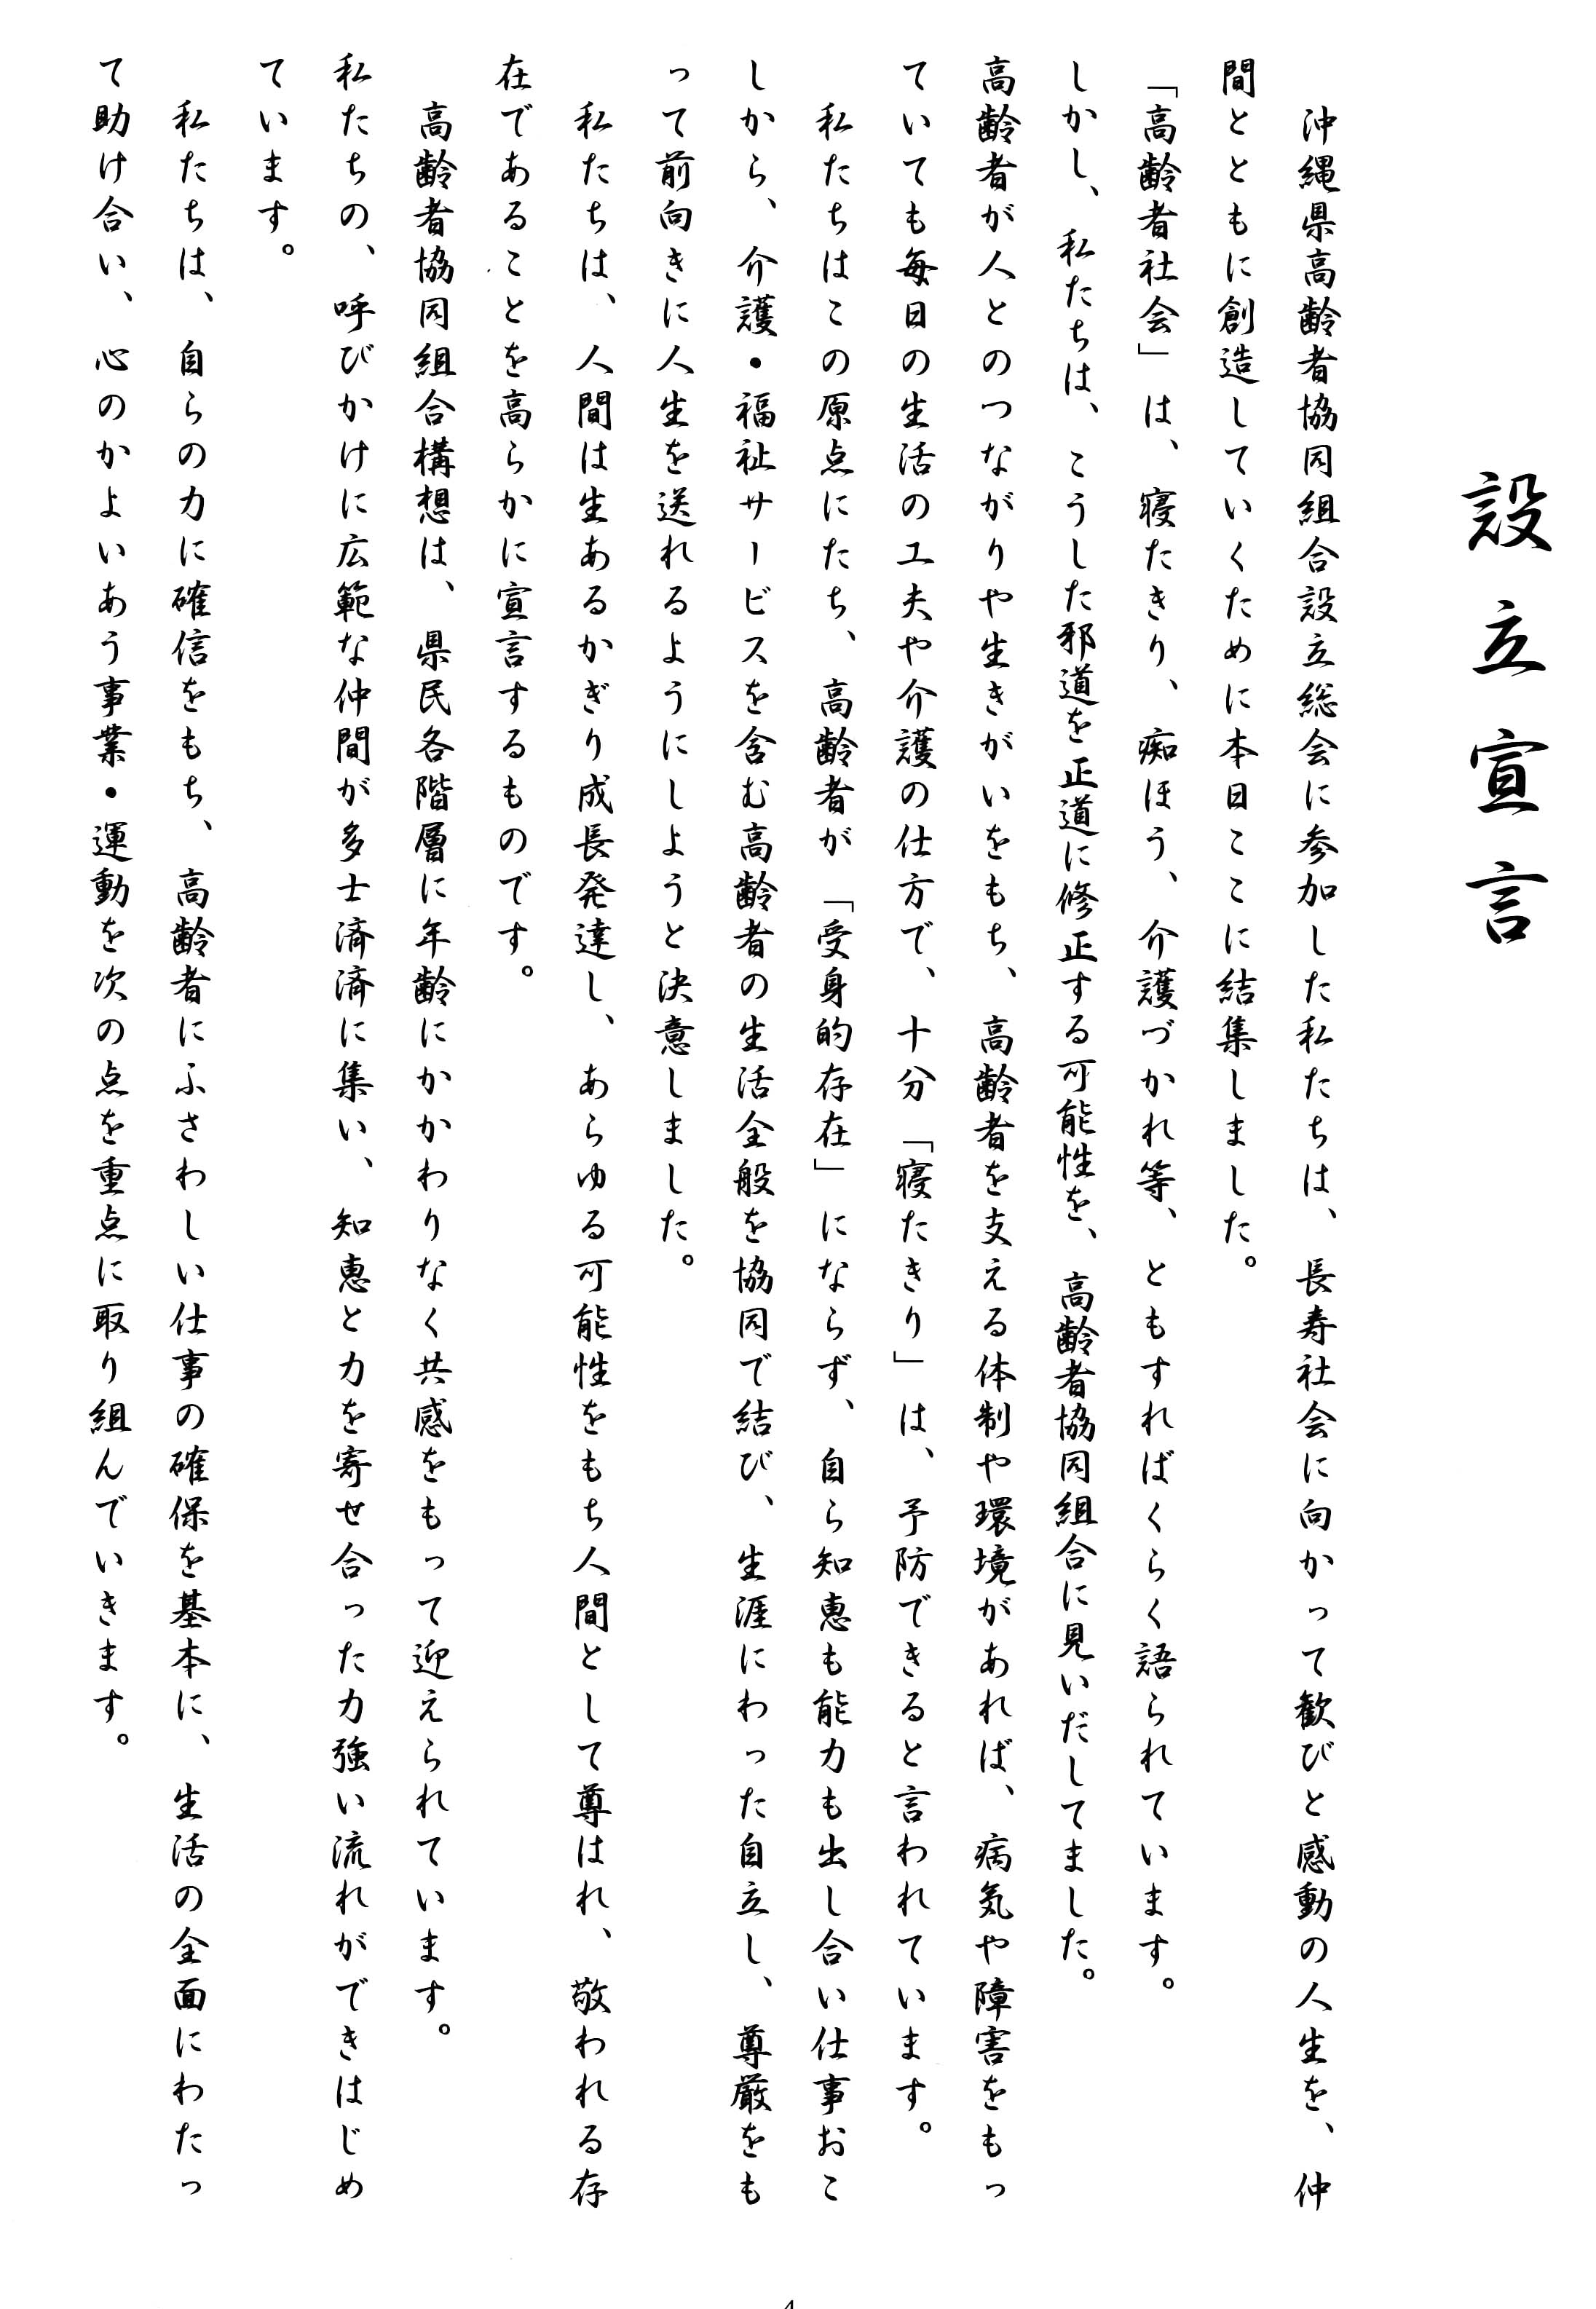 設立宣言
沖縄県高齢者協同組合設立総会に参加した私たちは、長寿社会に向かって歓びと感動の人生を、仲
間とともに創造していくために本日ここに結集しました。
「高齢者社会」は、寝たきり、痴ほう、介護づかれ等、ともすればくらく語られています。
しかし、私たちは、こうした邪道を正道に修正する可能性を、高齢者協同組合に見いだしてました。
高齢者が人とのつながりや生きがいをもち、高齢者を支える体制や環境があれば、病気や障害をもっ
ていても毎日の生活の工夫や介護の仕方で、十分「寝たきり」は、予防できると言われています。
私たちはこの原点にたち、高齢者が「受身的存在」にならず、自ら知恵も能力も出し合い仕事おこ
しから、介護・福祉サービスを含む高齢者の生活全般を協同で結び、生涯にわった自立し、尊厳をも
って前向きに人生を送れるようにしようと決意しました。
私たちは、人間は生あるかぎり成長発達し、あらゆる可能性をもち人間として尊はれ、敬われる存
在であることを高らかに宣言するものです。
高齢者協同組合構想は、県民各階層に年齢にかかわりなく共感をもって迎えられています。
私たちの、呼びかけに広範な仲間が多士済済に集い、知恵と力を寄せ合った力強い流れができはじめ
ています。
私たちは、自らの力に確信をもち、高齢者にふさわしい仕事の確保を基本に、生活の全面にわたっ
て助け合い、心のかよいあう事業・運動を次の点を重点に取り組んでいきます。